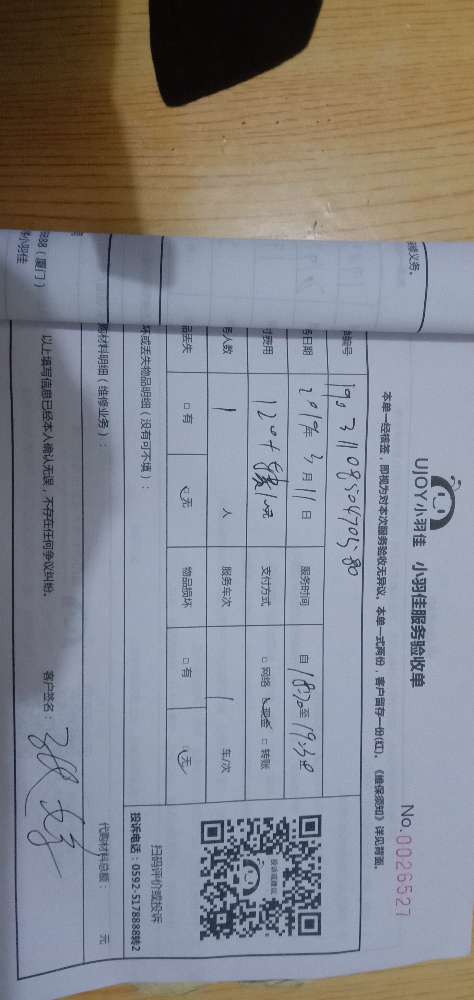 UJOY小羽佳 小羽佳服务验收单
No.0026527
本单一经核签，即视为对本次服务验收无异议。本单一式两份，客户留存一份(红)。《维保须知》详见背面。
编号
务日期 2019年 3 月 11 日 服务时间 自 18:30 至 19:30
费用 支付方式 □ 网络 现金 □ 转账
务人数 1 人 服务车次 1 车/次
品丢失 □ 有 无 物品损坏 □ 有 无
坏或丢失物品明细（没有可不填）：
扫码评价或投诉
投诉电话：0592-5178888转2
材料明细（维修业务）：
代购材料总额： 元
以上填写信息已经本人确认无误，不存在任何争议纠纷。 客户签名：
修义务。
888（厦门）
小羽佳